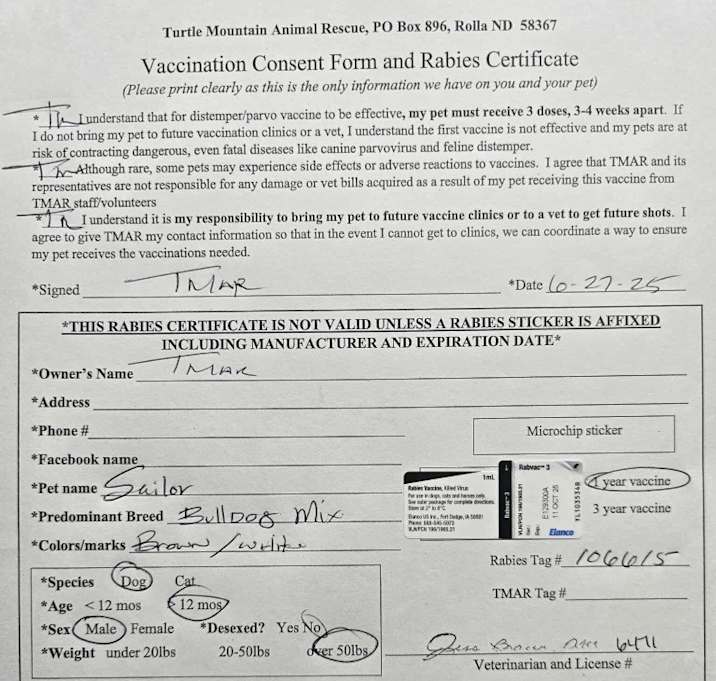 Turtle Mountain Animal Rescue, PO Box 896, Rolla ND 58367
Vaccination Consent Form and Rabies Certificate
(Please print clearly as this is the only information we have on you and your pet)
* I understand that for distemper/parvo vaccine to be effective, my pet must receive 3 doses, 3-4 weeks apart. If
I do not bring my pet to future vaccination clinics or a vet, I understand the first vaccine is not effective and my pets are at
risk of contracting dangerous, even fatal diseases like canine parvovirus and feline distemper.
* Although rare, some pets may experience side effects or adverse reactions to vaccines. I agree that TMAR and its
representatives are not responsible for any damage or vet bills acquired as a result of my pet receiving this vaccine from
TMAR staff/volunteers
* I understand it is my responsibility to bring my pet to future vaccine clinics or to a vet to get future shots. I
agree to give TMAR my contact information so that in the event I cannot get to clinics, we can coordinate a way to ensure
my pet receives the vaccinations needed.
*Signed TMAR *Date 6-27-25
*THIS RABIES CERTIFICATE IS NOT VALID UNLESS A RABIES STICKER IS AFFIXED
INCLUDING MANUFACTURER AND EXPIRATION DATE*
*Owner's Name TMAR
*Address
*Phone #
Microchip sticker
*Facebook name
1mL
Rabies Vaccine, Killed Virus
For use in dogs, cats and horses only.
See outer package for complete directions.
Store at 2° to 8°C.
Elanco US Inc., Fort Dodge, IA 50501
Rabvac™ 3
Rabvac™ 3
11 OCT 26
Elanco
1 year vaccine
3 year vaccine
*Pet name Sailor
*Predominant Breed Bulldog Mix
*Colors/marks Brown/white
Rabies Tag # 106615
TMAR Tag #
*Species Dog Cat
*Age < 12 mos > 12 mos
*Sex Male Female *Desexed? Yes No
*Weight under 20lbs 20-50lbs over 50lbs
6471
Veterinarian and License #